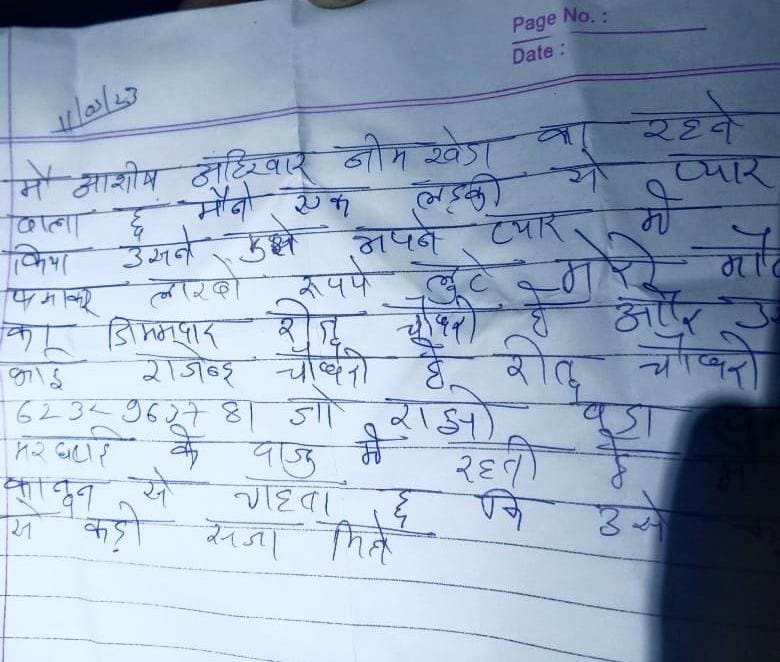 Page No. :
Date :
11/03/23
मै आशीष अहिरवार नीम खेडा का रहने
वाला हूं मैने एक लड़की से प्यार
किया उसने मुझे अपने प्यार मे
फसाकर लाखो रूपये लुटे मेरी मौत
का जिम्मदार रीतू चौधरी है और
भाई राजेन्द्र चौधरी है रीतू चौधरी
जो राझी
मरघटाई के वाजु मे रहती है
कानून से चाहता हूं कि उसे
से कड़ी सजा मिले